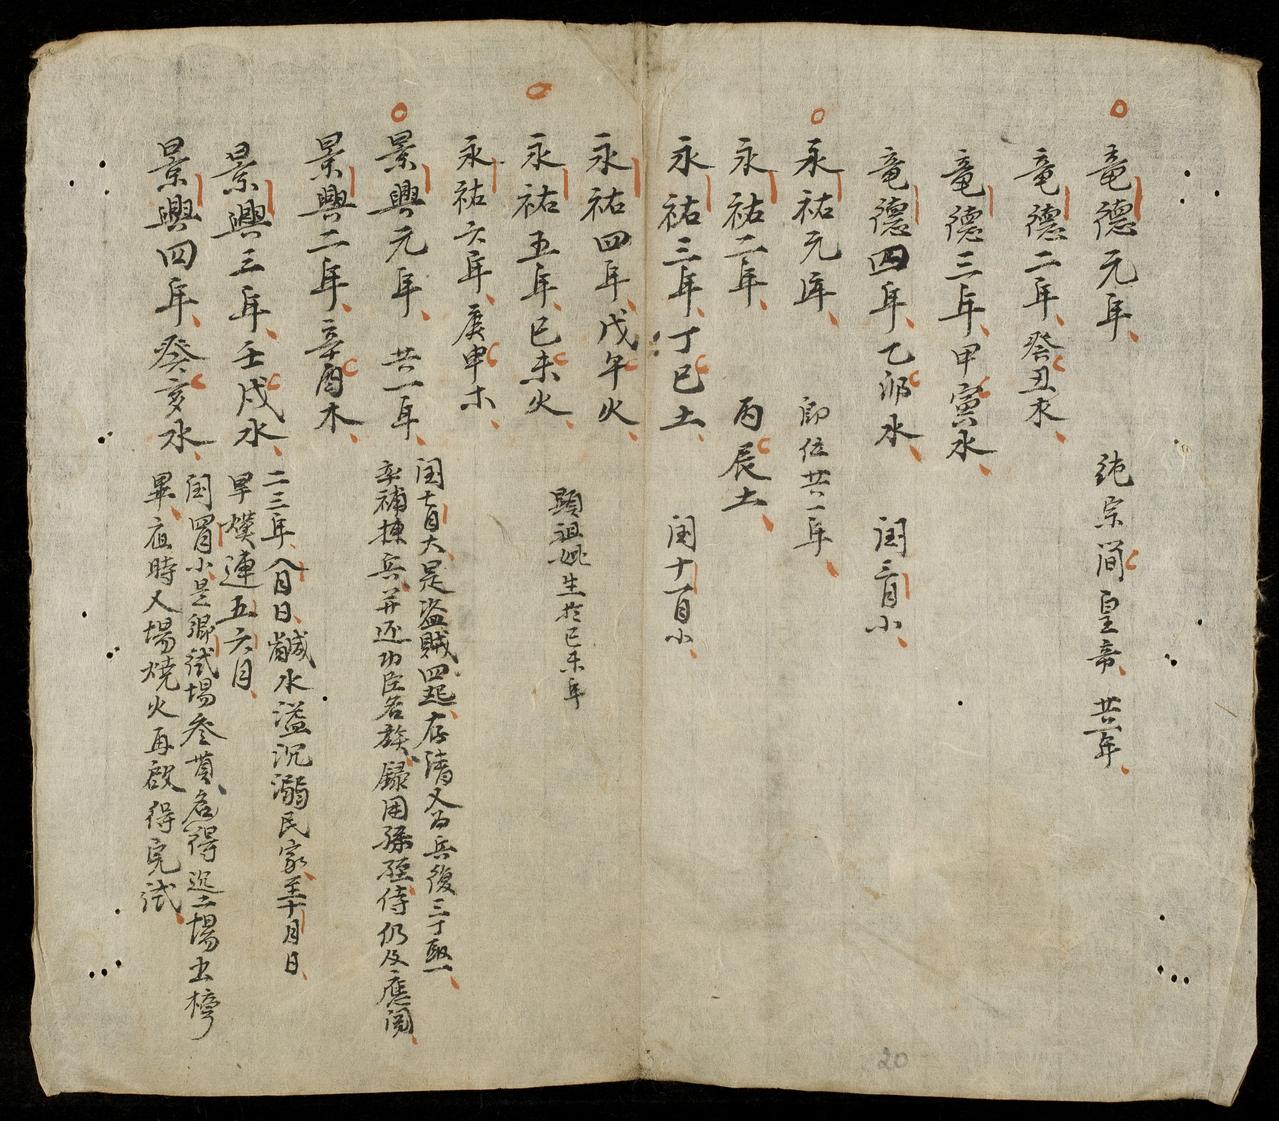 竜德元年、 純宗簡皇帝、廿二年、
竜德二年、癸丑木、
竜德三年、甲寅水、
竜德四年、乙卯水、 閏三月小、
永祐元年、 即位廿一年、
永祐二年、 丙辰土、
永祐三年、丁巳土、 閏十一月小、
永祐四年、戊午火、
永祐五年、己未火、 顯祖妣生於己未年
永祐六年、庚申木、
景興元年、廿一年、 閏七月大是盗賊四起、存清乂為兵復三丁取一、
率補揀兵、并还功臣名族、録用孫侄侍仍及應閲、
景興二年、辛酉木、
景興三年、壬戌水、 二三年、八月日、鹹水溢沉溺民家、至十月日、
旱熯連五六月、
景興四年、癸亥水、 閏四月小、是鄉試場叁貫、名得迯二場出榜
畢、店時乂場燒火再啟得完試、
20